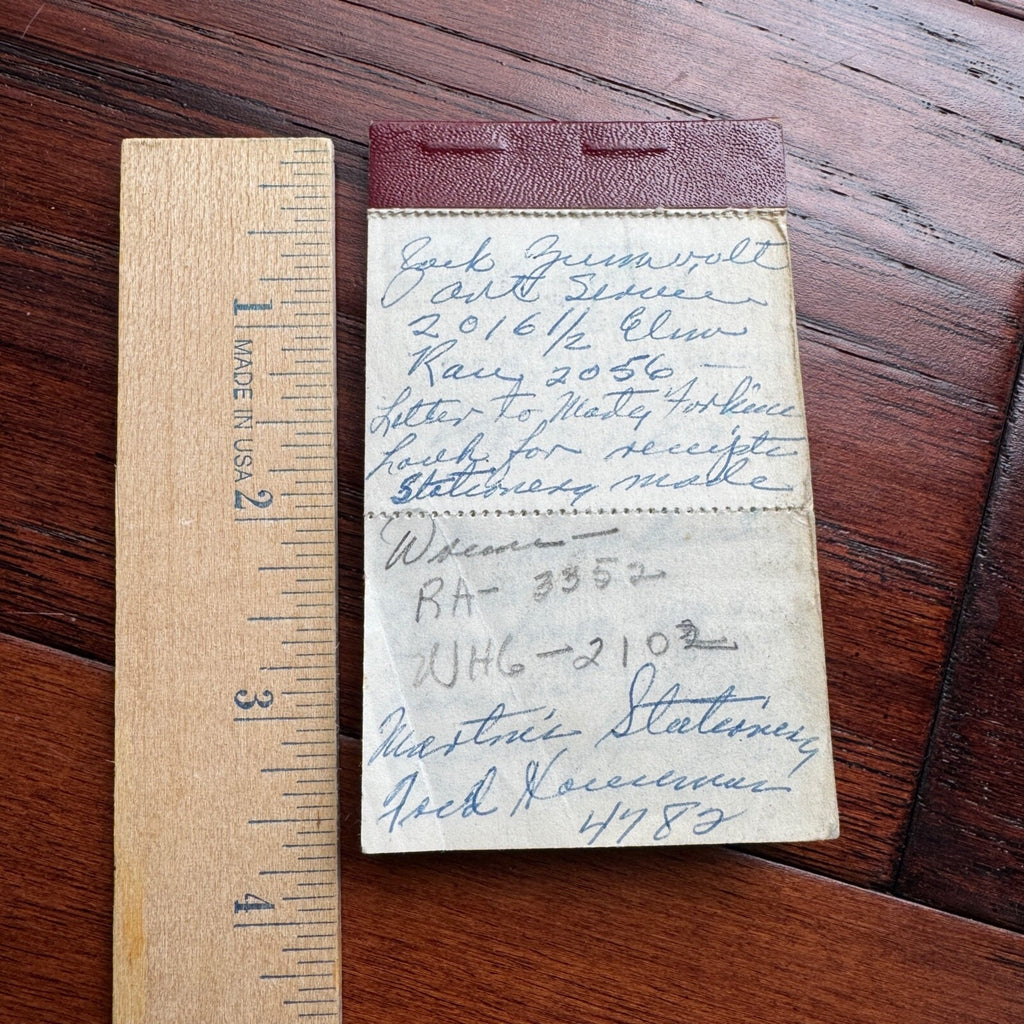 1
MADE IN USA
2
3
4
Jack Zumwolt
Art Service
2016 1/2 Elm
Ray 2056 —
Letter to Marty
Look for receipts
Stationery made
RA- 3352
WH6-2102
Martin's Stationery
Fred
4782